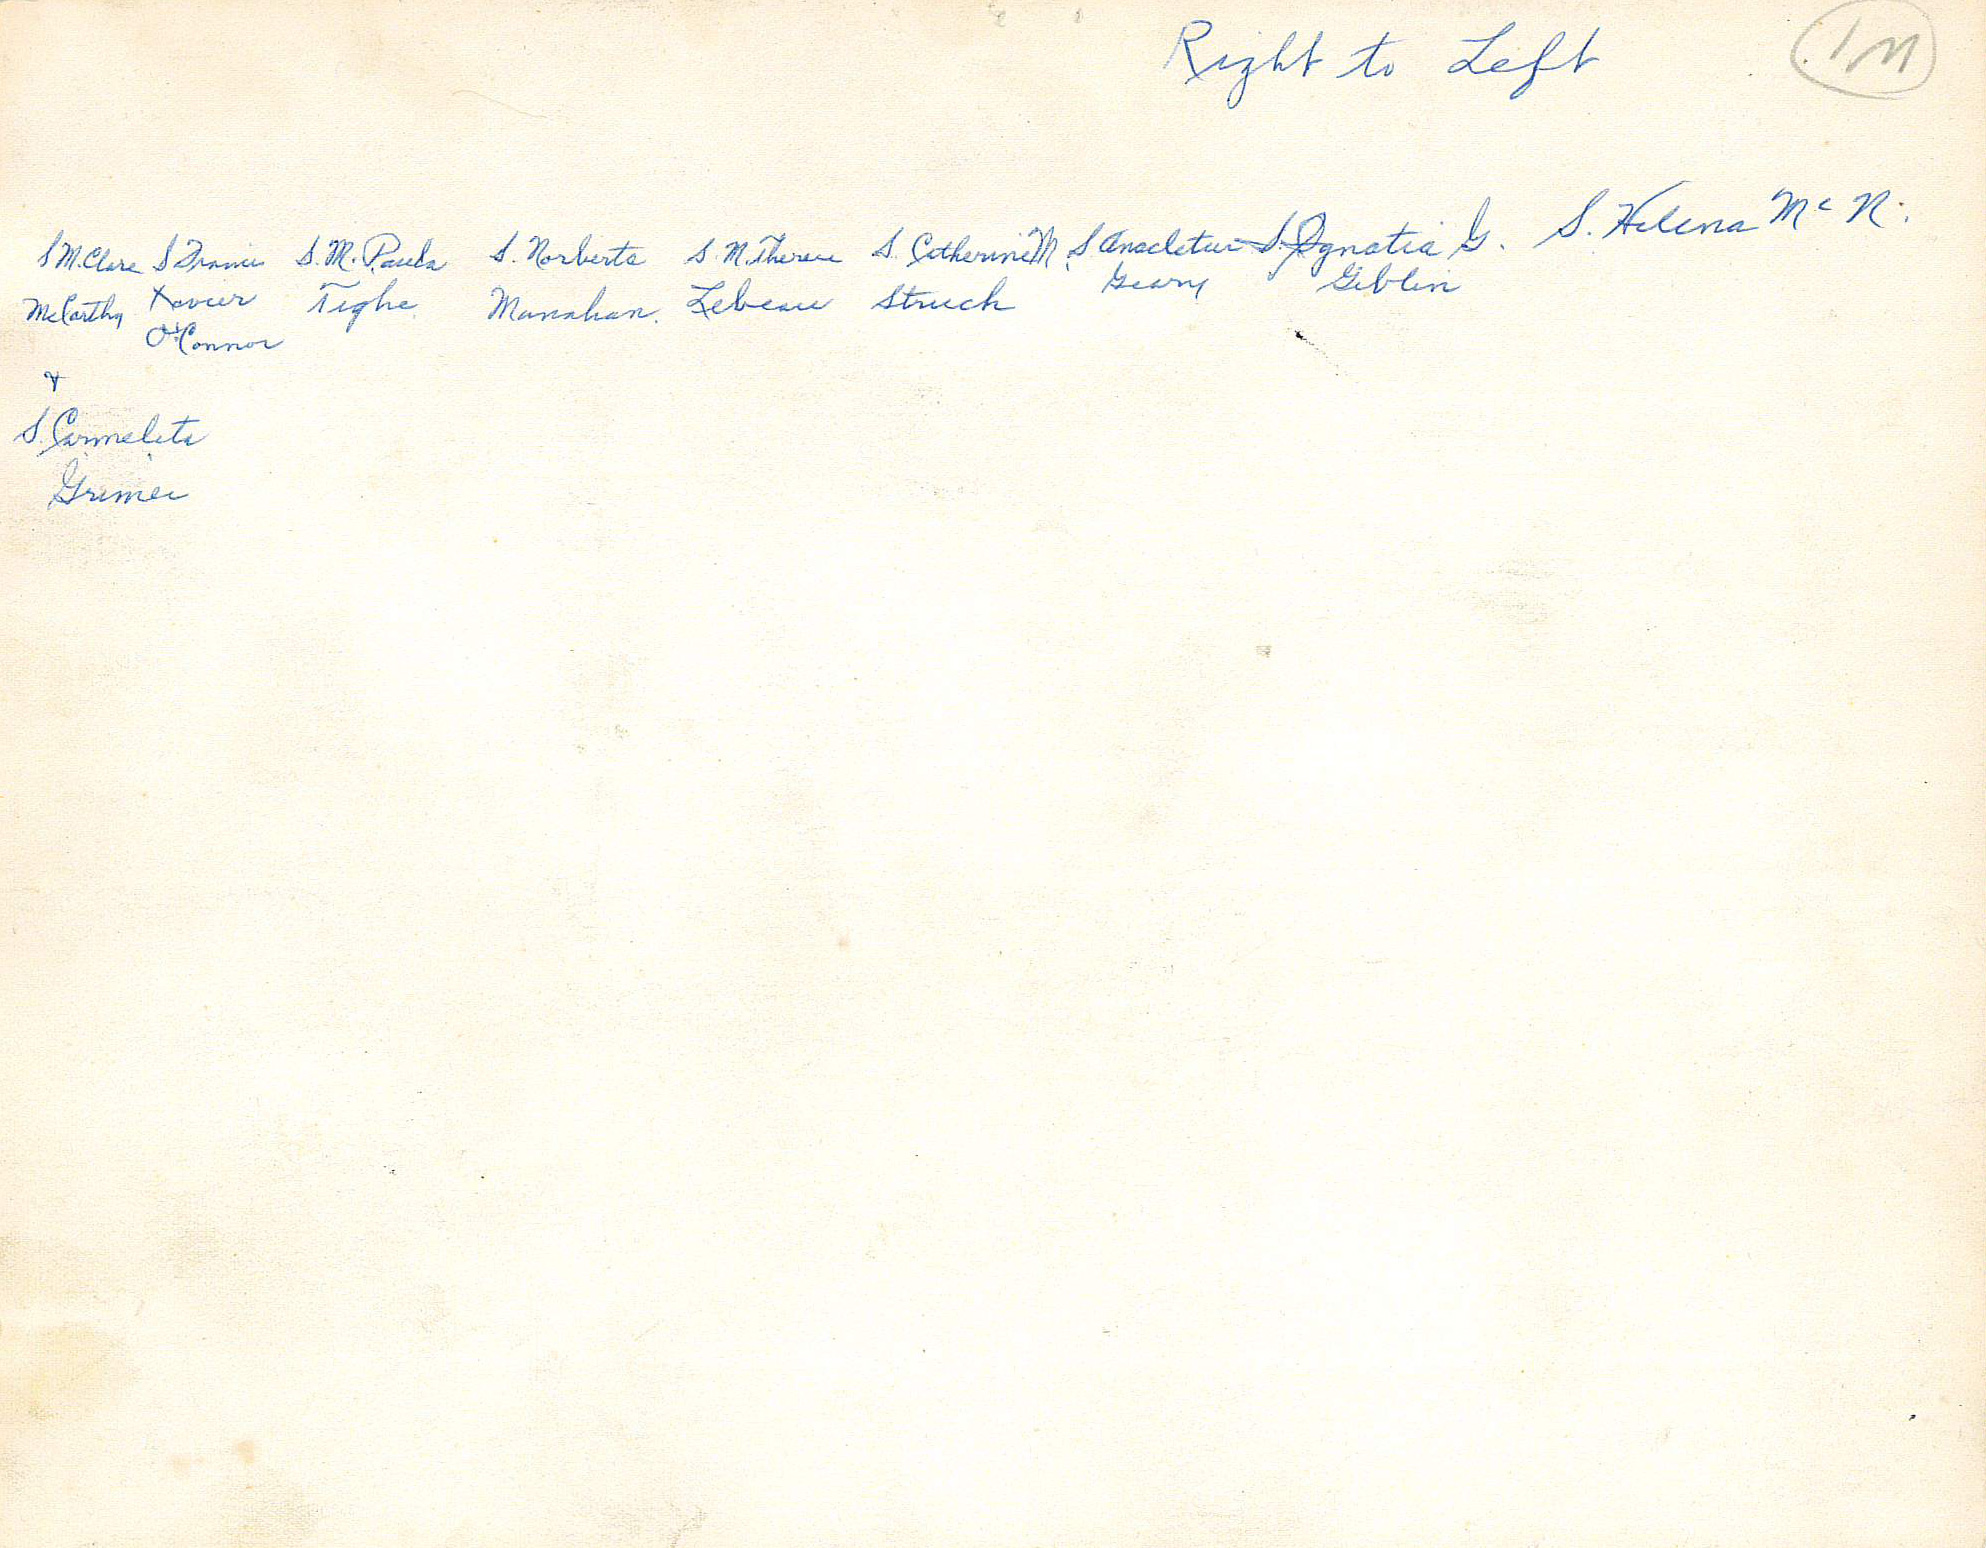 Right to Left
1M
S M. Clare S Francis S. M. Paula S. Norberta S. M. Therese S. Catherine M. S Anacletus S. Ignatia G. S. Helena Mc N.
McCarthy Xavier Tighe Manahan. Lebeau Struck Geary Giblin
O'Connor
+
S. Carmelita
Grimes